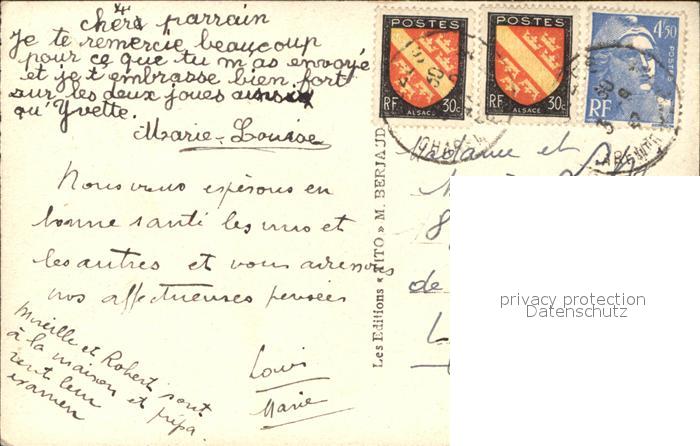 chère parrain
Je te remercie beaucoup
pour ce que tu m as envoyé
et je t embrasse bien fort
sur les deux joues ainsi
qu'Yvette.
Marie-Louise
Nous vous espérons en
bonne santé les uns et
les autres et vous adressons
nos affectueuses pensées
Louis
Marie
Mireille et Robert sont
à la maison et prépa
rent leur
examen
Les Editions « TITO » M. BERJAUD
POSTES
RF 30c
ALSACE
POSTES
RF 30c
ALSACE
4f50
POSTES
RF
Madame et
de
privacy protection
Datenschutz